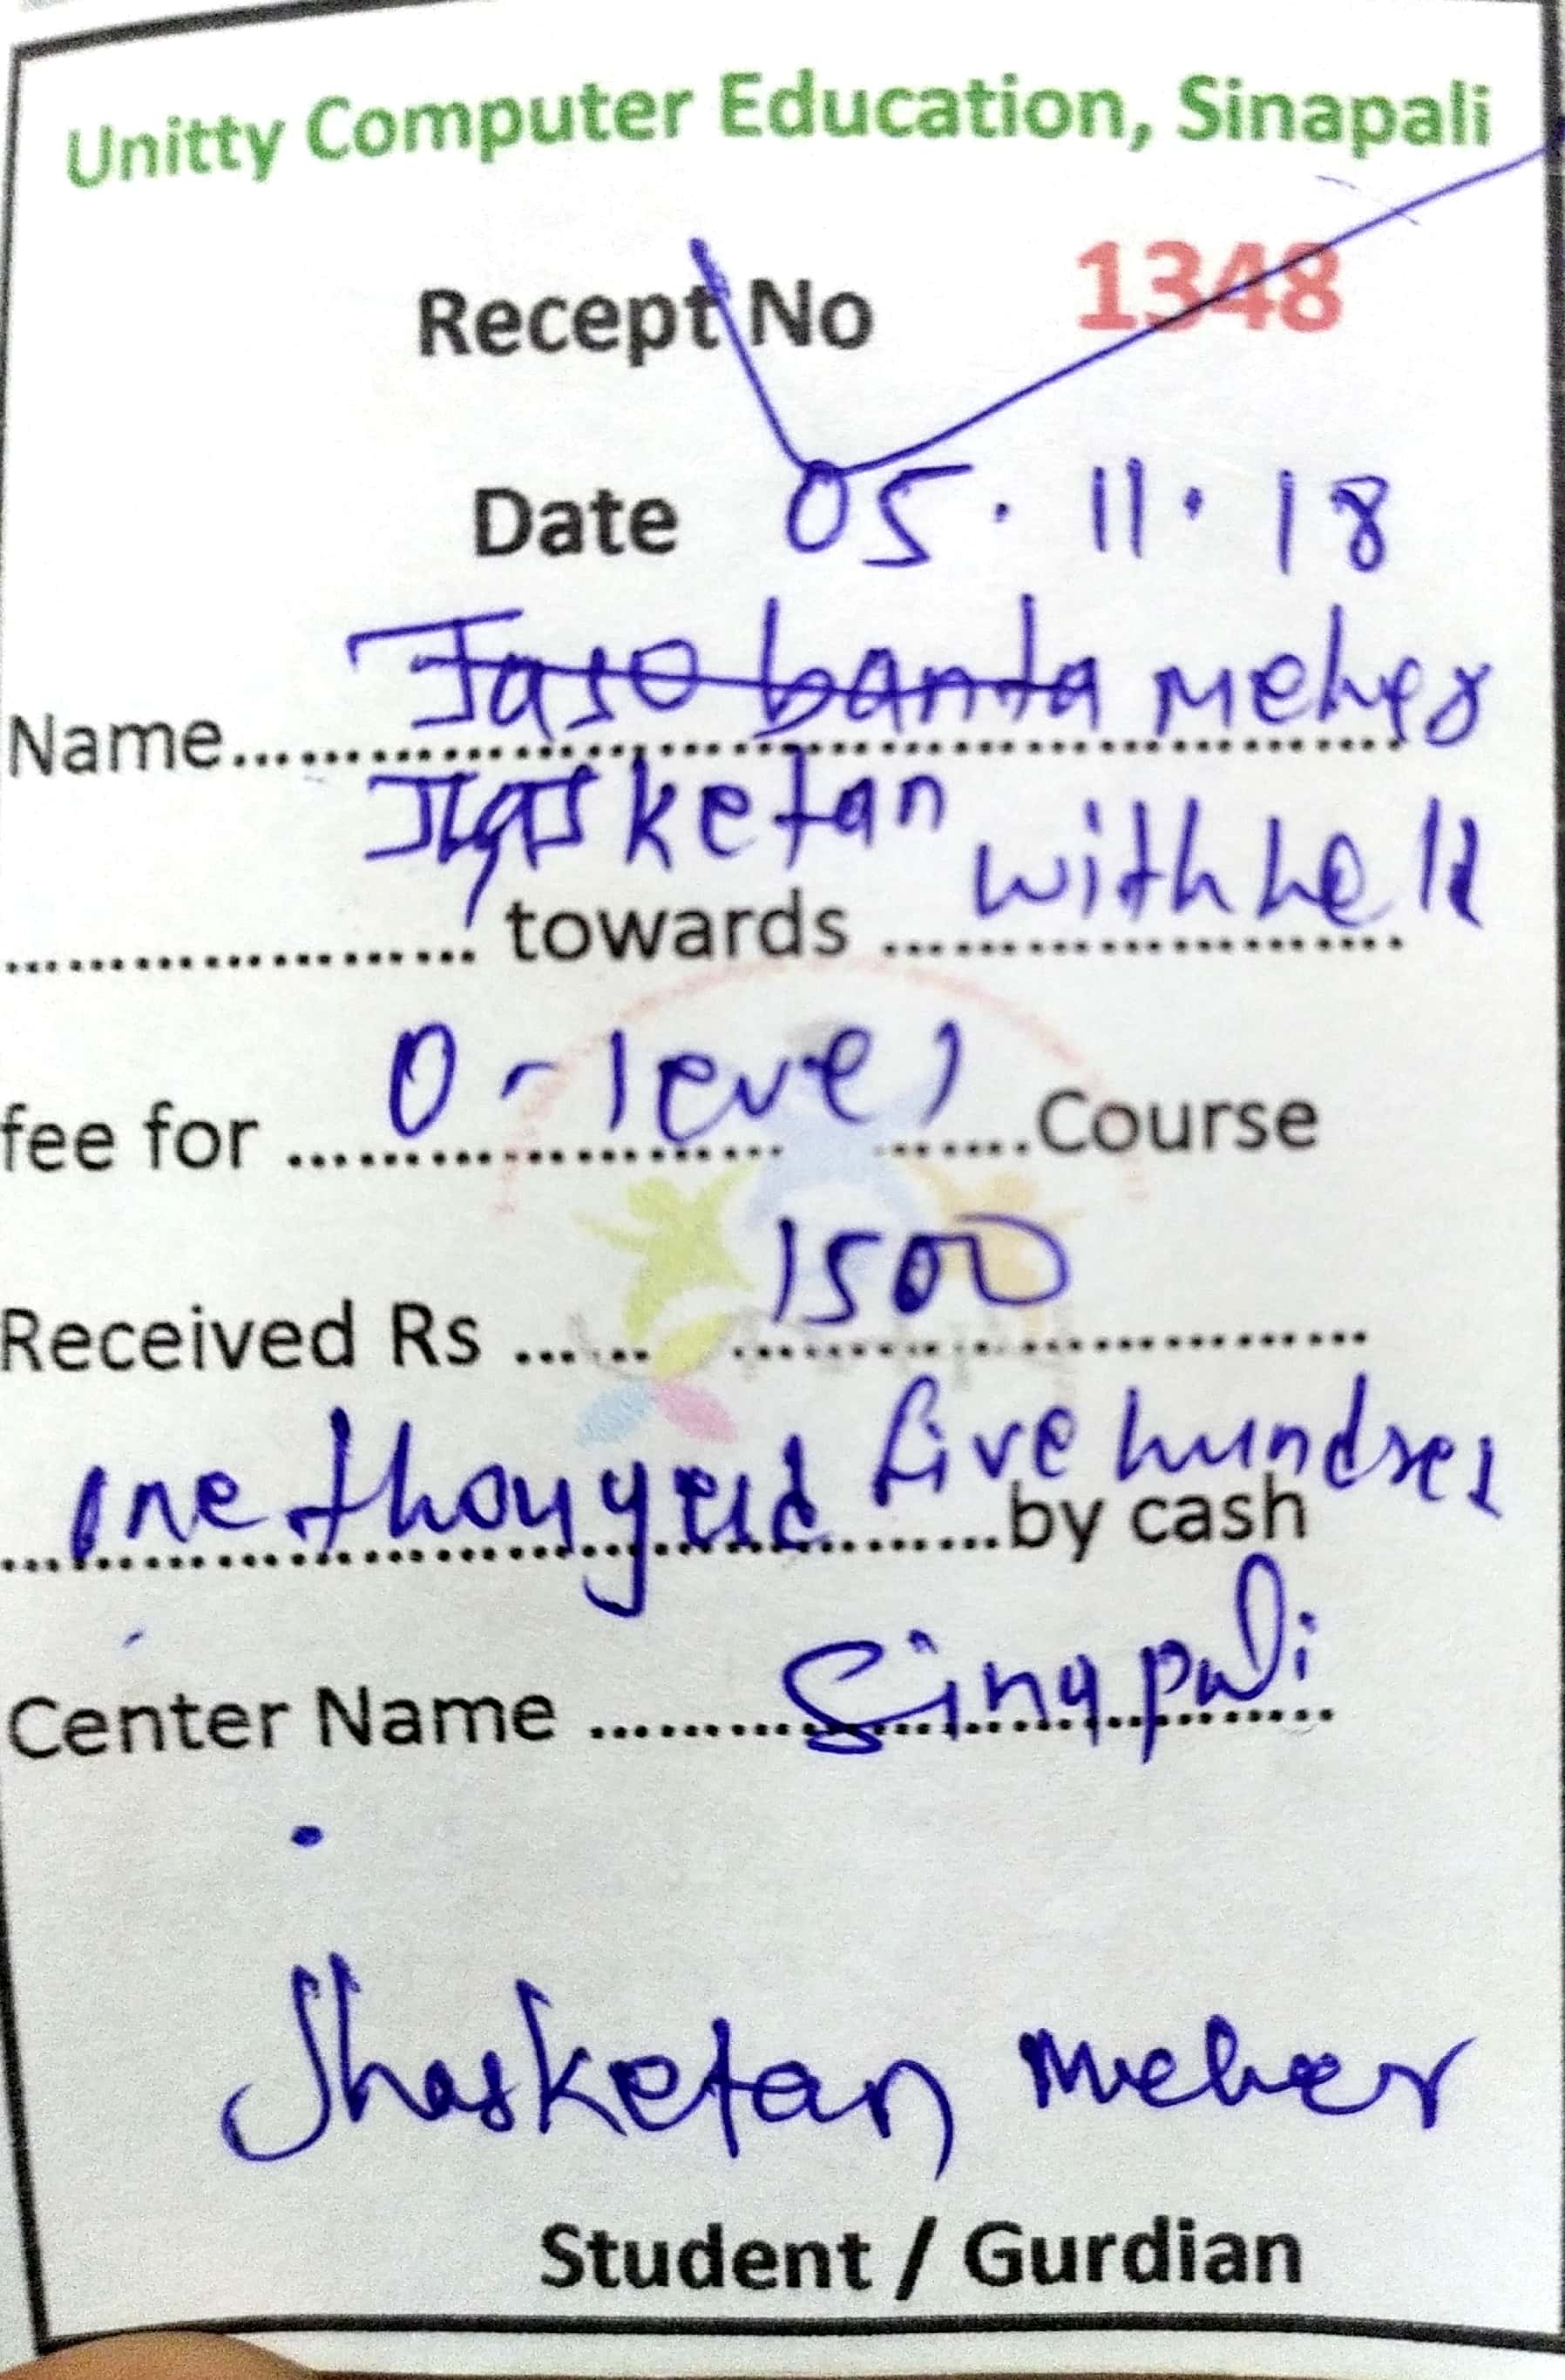 Unitty Computer Education, Sinapali
Recept No 1348
Date 05.11.18
Name Jasobanta Meher
Jhasketan
towards withheld
fee for O-level Course
Received Rs 1500
One thousand five hundred
by cash
Center Name Sinapali
Jhasketan Meher
Student / Gurdian